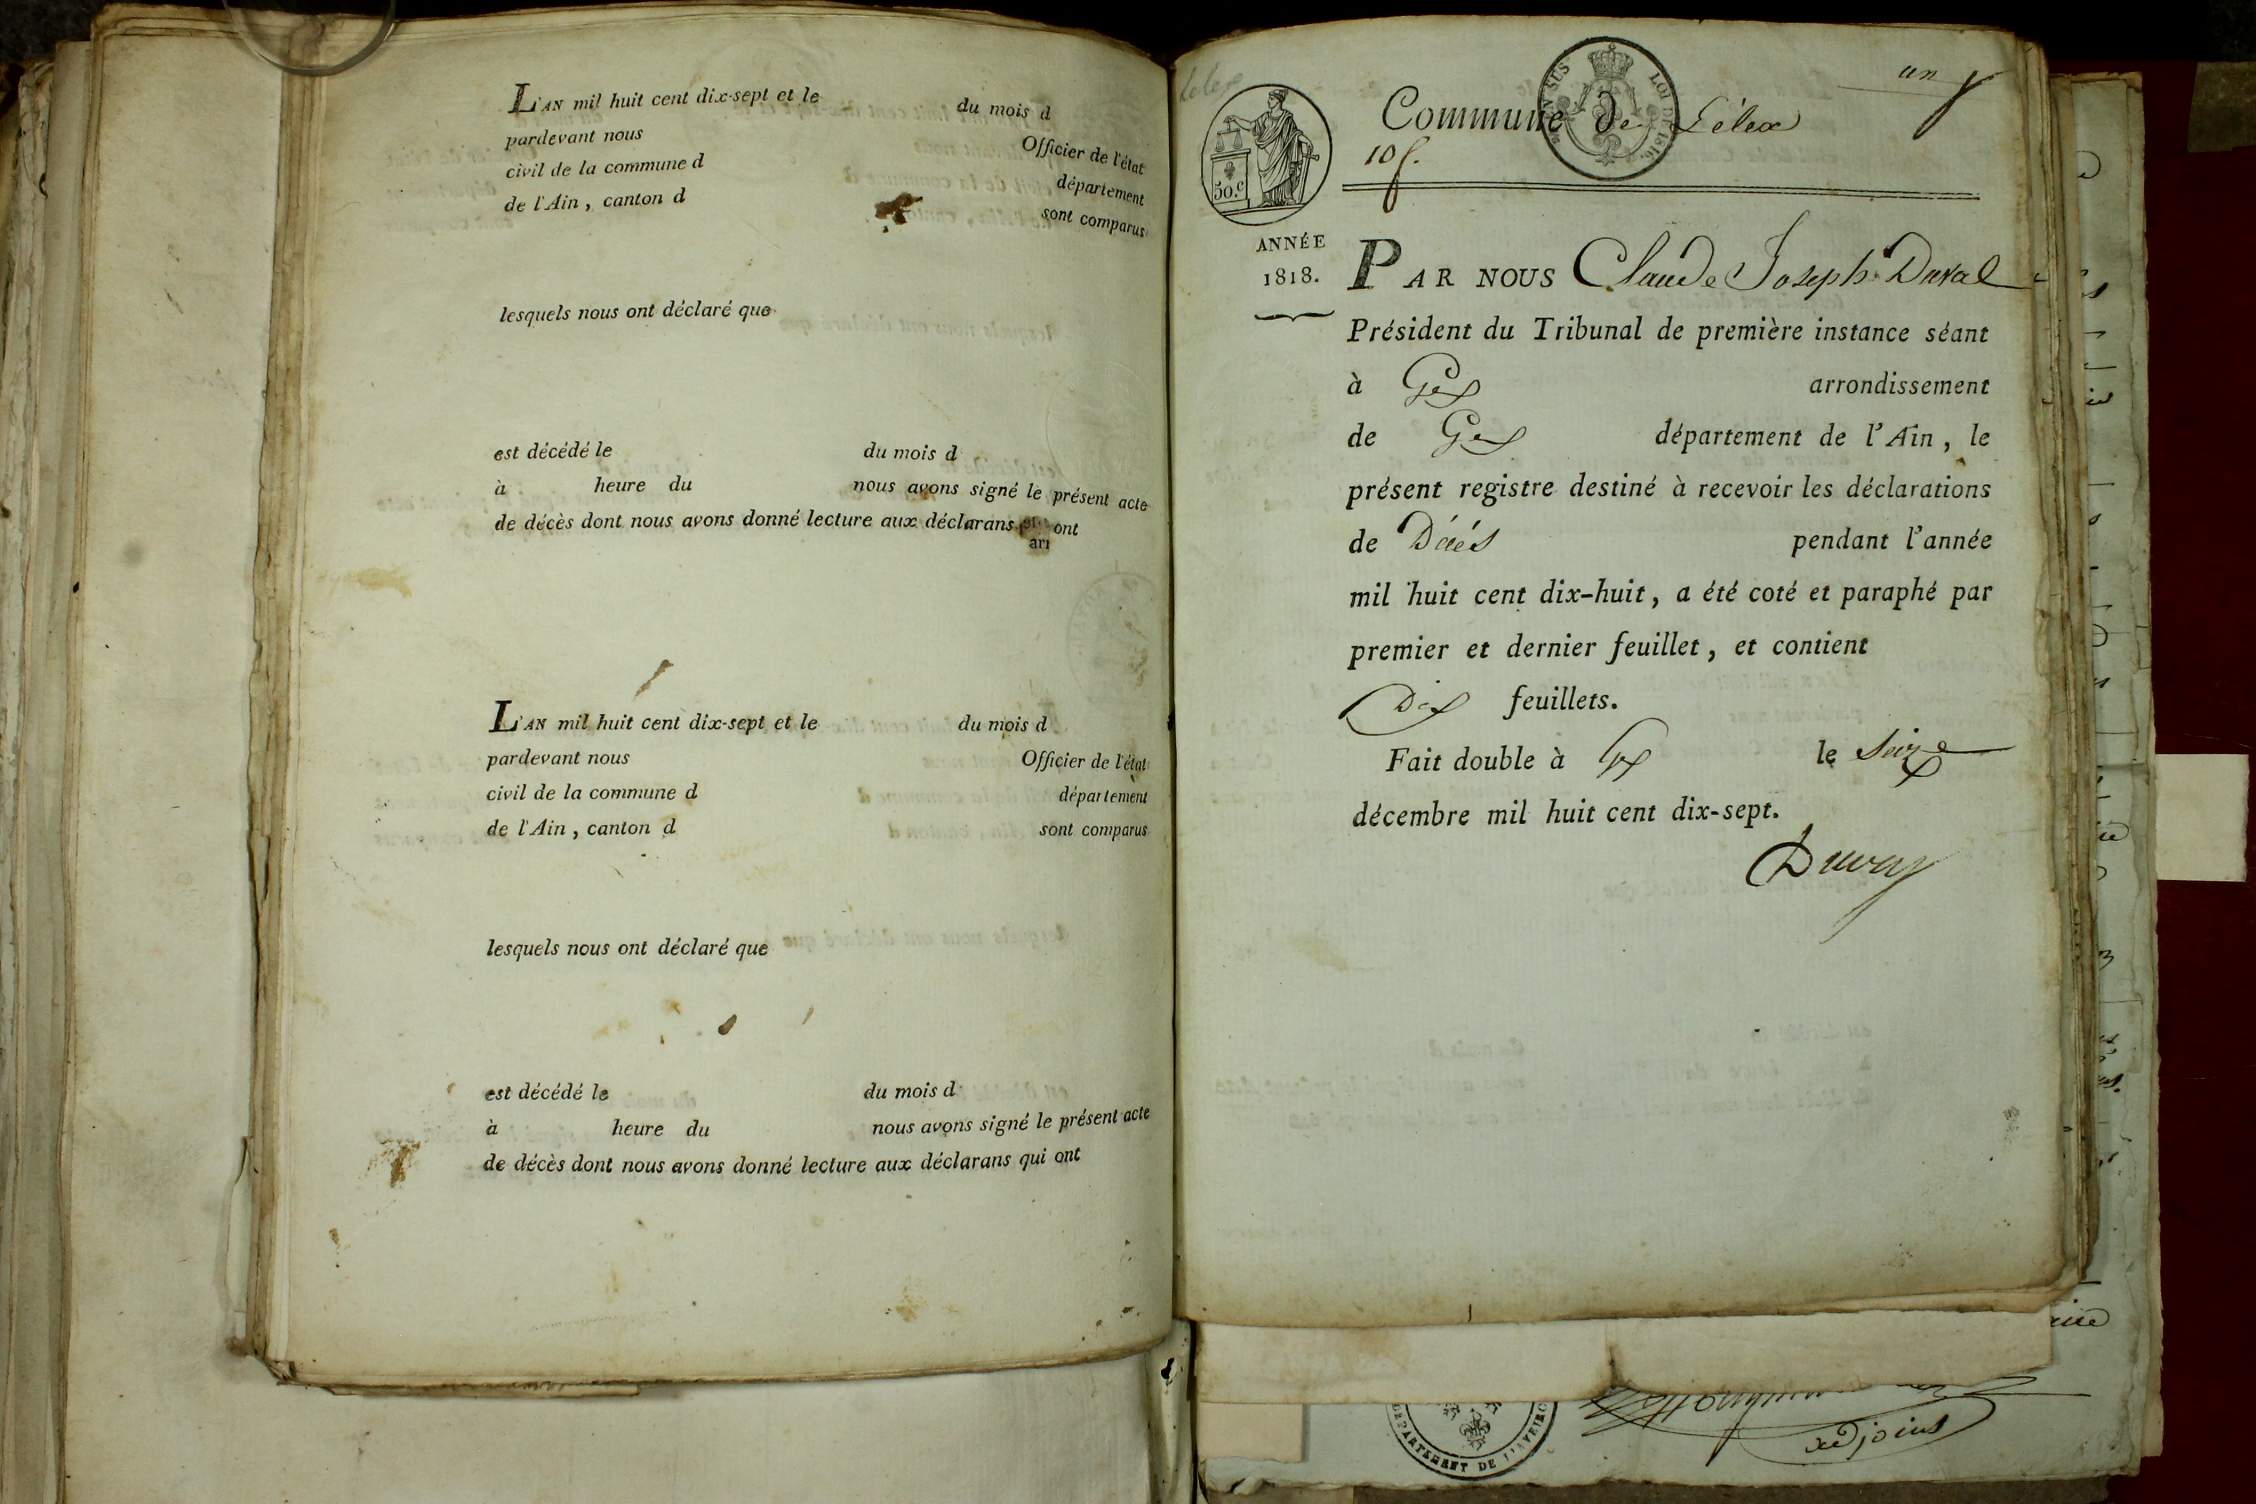 L'AN mil huit cent dix-sept et le du mois d
pardevant nous Officier de l'état
civil de la commune d département
de l'Ain, canton d sont comparus
lesquels nous ont déclaré que
est décédé le du mois d
à heure du nous avons signé le présent acte
de décès dont nous avons donné lecture aux déclarans ont
L'AN mil huit cent dix-sept et le du mois d
pardevant nous Officier de l'état
civil de la commune d département
de l'Ain, canton d sont comparus
lesquels nous ont déclaré que
est décédé le du mois d
à heure du nous avons signé le présent acte
de décès dont nous avons donné lecture aux déclarans qui ont
Lelex
un
EN SUS LOI DE 1816.
50.c
Commune de Lélex
10 f.
ANNÉE
1818.
PAR NOUS Claude Joseph Duval
Président du Tribunal de première instance séant
à Gex arrondissement
de Gex département de l'Ain, le
présent registre destiné à recevoir les déclarations
de Décés pendant l'année
mil huit cent dix-huit, a été coté et paraphé par
premier et dernier feuillet, et contient
Dix feuillets.
Fait double à Gex le Seize
décembre mil huit cent dix-sept.
Duval
DEPARTEMENT DE L'AVEIRON
adjoint